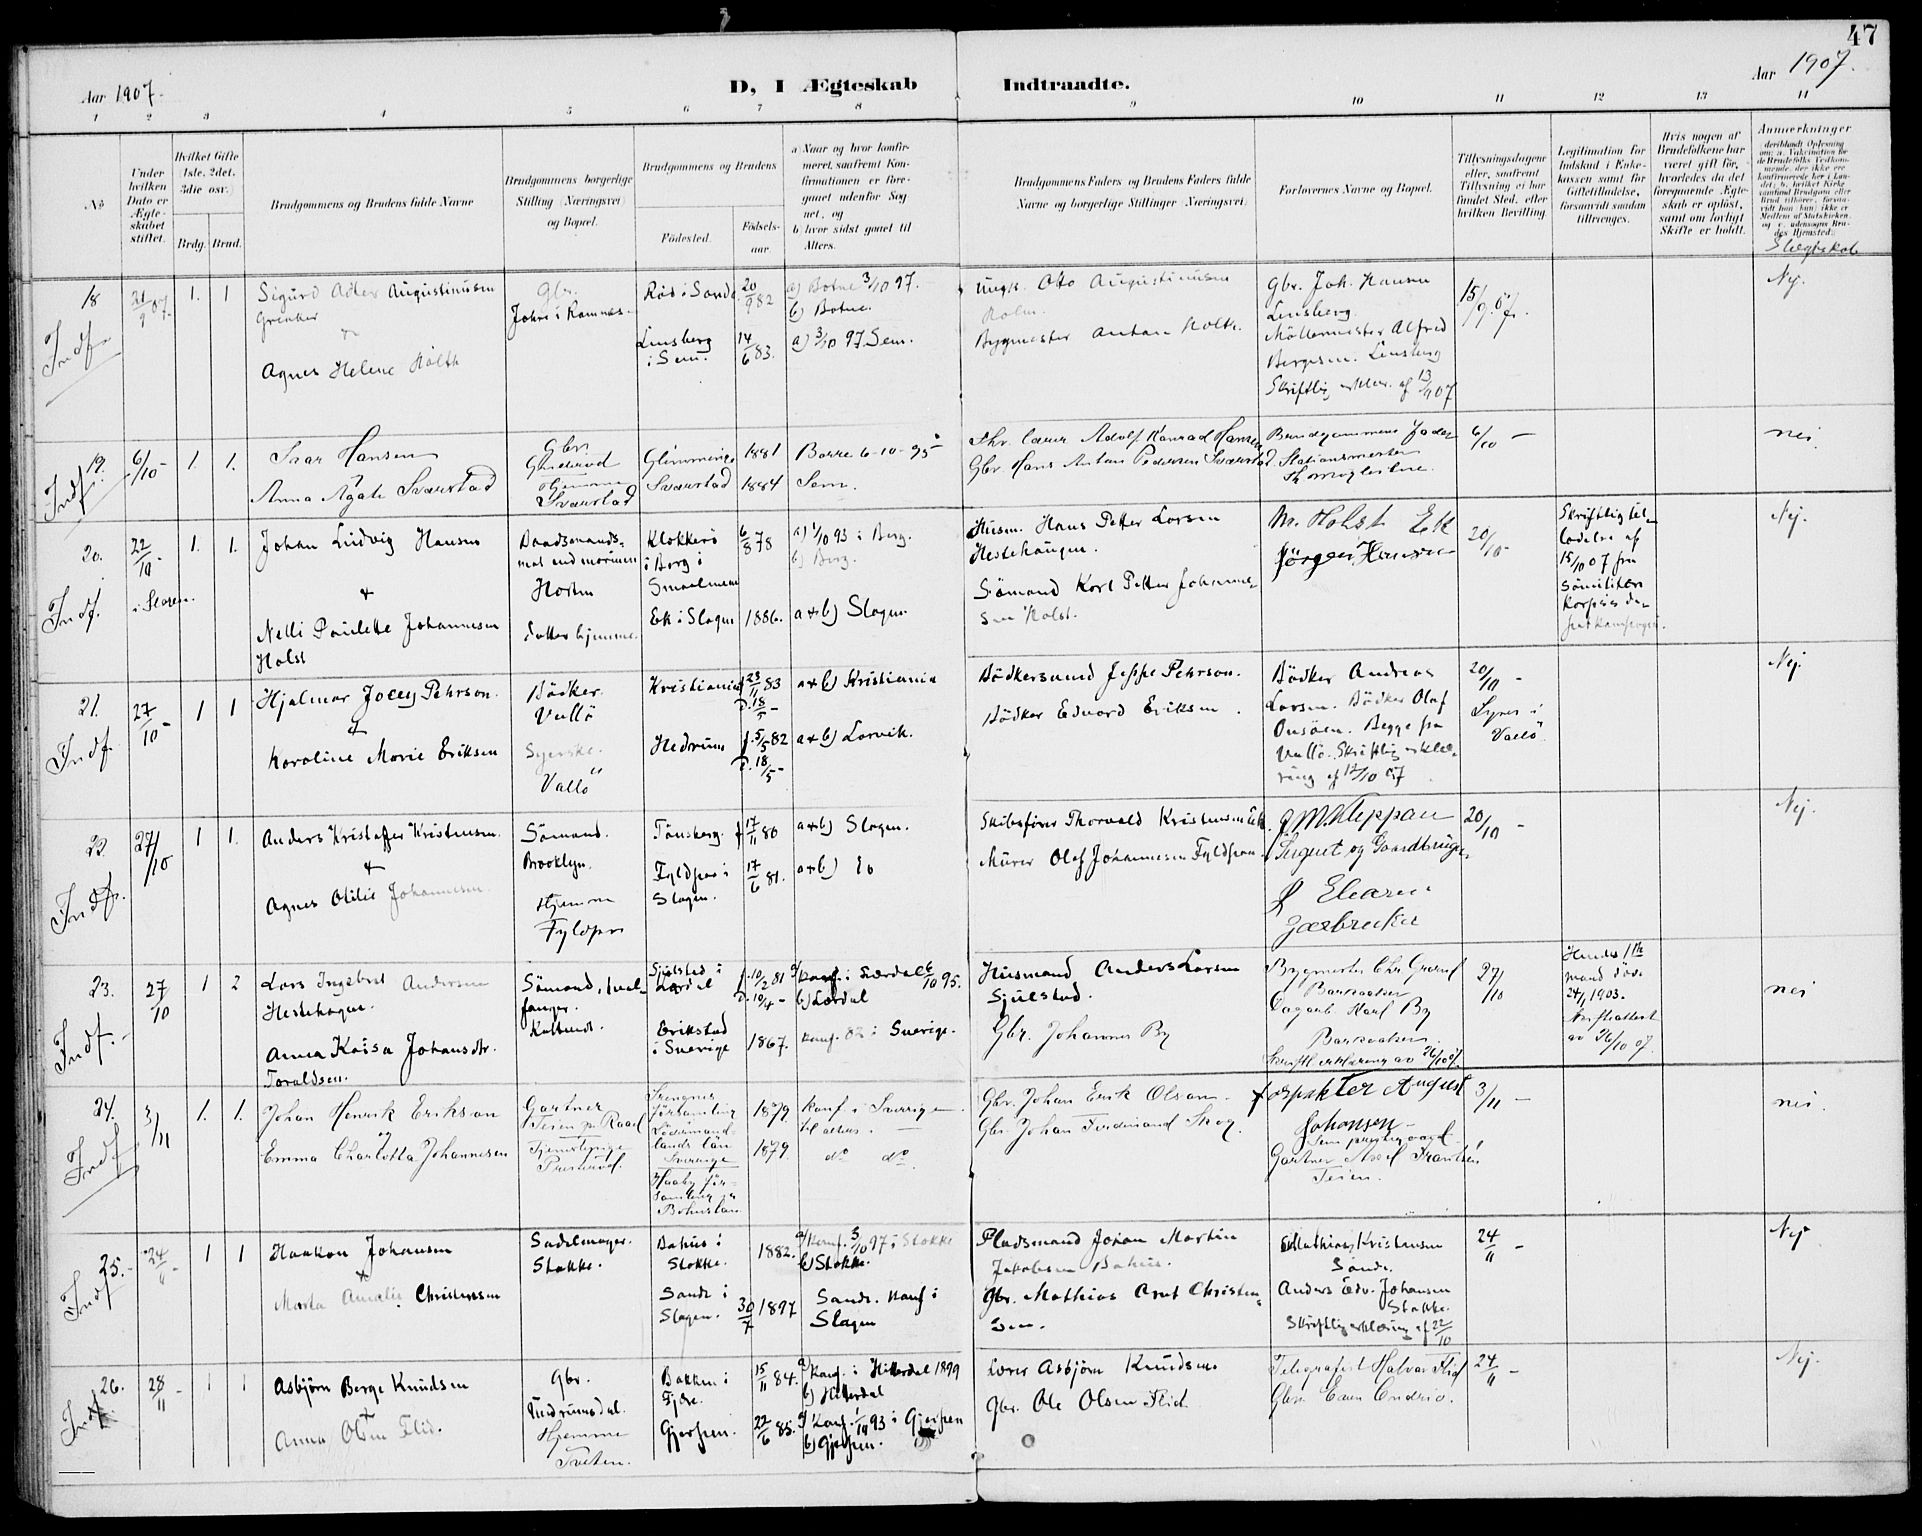 47
Aar 1907.
D, I Ægteskab Indtraadte.
Aar 1907.
1 2 3 4 5 6 7 8 9 10 11 12 13 14
No
Under hvilken Dato er Ægteskabet stiftet.
Hvilket Gifte (1ste, 2det, 3die osv.)
Brdg. Brud.
Brudgommens og Brudens fulde Navne
Brudgommens borgerlige Stilling (Næringsvei) og Bopæl.
Brudgommens og Brudens
Fødested. Fødselsaar.
a Naar og hvor konfirmeret, saafremt Konfirmationen er foregaaet udenfor Sognet, og
b) hvor sidst gaaet til Alters.
Brudgommens Faders og Brudens Faders fulde Navne og borgerlige Stillinger (Næringsvei)
Forlovernes Navne og Bopæl.
Tillysningsdagene eller, saafremt Tillysning ei har fundet Sted, efter hvilken Bevilling
Legitimation for Indskud i Enkekassen samt for Giftetilladelse, forsaavidt saadan tiltrænges.
Hvis nogen af Brudefolkene har været gift før, hvorledes da det foregaaende Ægteskab er opløst, samt om lovligt Skifte er holdt.
Anmærkninger
Slægtskab
18
Indf.
21/9 07.
1. 1
Sigurd Adler Augustinusen
&
Agnes Helene Holth
Gbr.
Jahre i Ramnes.
Rød i Sande 20/9 82
Linsberg i Sem. 14/6 83.
a) Botne 3/10 97.
b) Botne.
a) 3/10 97. Sem.
Ungk. Otto Augustinusen
Holm.
Bygmester Antan Holth.
Gbr. Joh. Hansen
Linsberg.
Möllermester Alfred
Bergesen. Linsberg
Skriftlig erklær. af 13/9 07
15/9 07
Nej.
19.
Indf
6/10 -
1. 1.
Ivar Hansen
Anna Agate Sværstad
Gbr.
Gunderød
Hjemme
Sværstad
Glimminge 1881
Sværstad 1884
Borre 6-10-95
Sem.
Thv. lærer Adolf Konrad Hansen
Gbr. Hans Antan Pedersen Sværstad
Brudgommens Fader
Stationsmester
6/10 -
nei
20.
Indf.
22/10 -
i Slagen.
1. 1.
Johan Ludvig Hansen
&
Nelli Paulette Johannesen
Holst
Baadsmandsmat ved marinen
Horten
Datter hjemme.
Klokkeri i Berg i Smaalenene 6/8 78
Ek i Slagen 1886.
a) 1/10 93 i Berg.
b) Berg.
a & b) Slagen
Husm. Hans Petter Larsen
Hestehaugen.
Sömand Karl Petter Johannesen Holst.
M. Holst Ek
Jörgen Hansen
20/10 -
Skriftlig tilladelse af 15/10 07 fra
Sömilitære
korpsets
Nej.
21.
Indf
27/10 -
1 1
Hjalmar Jocey Pehrson.
&
Karoline Marie Eriksen
Bödker.
Vallö
Syerske.
Vallö
Kristiania f. 23/11 83
D. 18/5 -
Hedrum f. 5/5 82
D. 18/5 -
a & b) Kristiania
a & b) Larvik.
Bödkersvend Jeppe Pehrson.
Bödker Edvard Eriksen.
Bödker Andreas
Larsen. Bödker Olaf
Onsöien. Begge fra
Vallö. Skriftlig erklæring af 17/10 07
20/10 -
Lyses i
Vallö.
Nej.
22.
Indf.
27/10
1 1.
Anders Kristoffer Kristensen.
&
Agnes Otilie Johannesen.
Sömand.
Brooklyn.
Hjemme
Fyldpaa
Tönsberg. f 17/11 80
Fyldpaa i Slagen. 17/6 81.
a & b) Slagen.
a & b) Do
Skibsförer Thorvald Kristensen Ek.
Murer Olaf Johannesen Fyldpaa.
J M. Kleppan
Snegut og Gaardbruger
Eliasen
Jarbruker
20/10 -
Nej.
23.
Indf. -
27/10
1 2
Lars Ingebret Andersen
Hestehagen.
Anna Kaisa Johansdtr.
Toraldsen.
Sömand, hvalfanger.
Kaltuedt.
Sjulstad i Lardal f. 10/2 81
D. 10/4 -
Erikstad i Sverige 1867.
a) Konf. i Lardal 6/10 95.
b) Lardal
Konf. 82 i Sverige.
Husmand Anders Larsen
Sjulstad.
Gbr. Johannes By
Bygmester Chr. Grorud
Barkaaker
Dagarb. Karl By
Barkaaker.
Skriftl. erklæring av 26/10 07.
27/10
Hendes 1ste
mand död
24/1 1903.
Skifteattest
av 26/10 07.
nei
24.
Indf
3/11
1. 1.
Johan Henrik Erikson
og
Emma Charlotta Johannesen
Gartner
Teien pr Raael
Tjenestepige
Presterød.
Strengnes församling
Södermanlands län
Sverige 1879.
Haaby församling pr
Bohuslän 1879.
Konf. i Sverige
til alters. -
do do
Gbr. Johan Erik Olson
Gbr. Johan Ferdinand Skog.
Forpakter August
Johansen
Sem prestegaard
Gartner Axel Frantsen
Teien.
3/11 -
nei.
25.
Indf
24/11 -
1 1
Haakon Johansen
&
Marta Amalie Christensen
Sadelmager.
Stokke.
Bahus i Stokke. 1882.
Sande i Slagen. 30/7 1897
a) Konf. 5/10 97 i Stokke
b) Stokke.
Sande. Konf i
Slagen
Pladsmand Johan Martin
Jakobsen Bahus.
Gbr. Mathias Arnt Christensen.
Mathias Kristensen
Sande.
Anders Edv. Johansen
Stokke.
Skriftlig erklæring af 22/10
24/11 -
Nej
26.
Indf.
28/11 -
1 1
Asbjörn Berge Knudsen
&
Anna Olsen Flid.
Gbr.
Hjemme
Tveten.
Bakken i Fjære. 15/11 84.
Gjerpen. 22/6 85.
a) Konf. i Hitterdal 1899
b) Hitterdal
a) Konf. 1/10 93 i Gjerpen
b) Gjerpen.
Lærer Asbjörn Knudsen
Gbr. Ole Olsen Flid
Telegrafist Halvor Flid
Gbr. Even Endrió.
24/11 -
Nej.